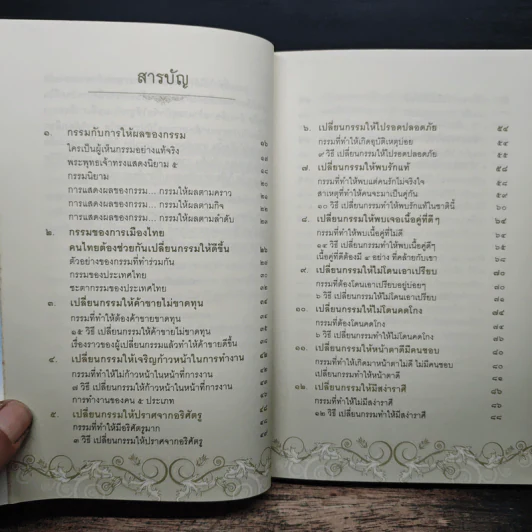 สารบัญ
๑. กรรมกับการให้ผลของกรรม ๑๖
ใครเป็นผู้เห็นกรรมอย่างแท้จริง
พระพุทธเจ้าทรงแสดงนิยาม ๕
กรรมนิยาม
การแสดงผลของกรรม... กรรมให้ผลตามคราว
การแสดงผลของกรรม... กรรมให้ผลตามกิจ
การแสดงผลของกรรม... กรรมให้ผลตามลำดับ
๒. กรรมของการเมืองไทย
คนไทยต้องช่วยกันเปลี่ยนกรรมให้ดีขึ้น ๒๖
ตัวอย่างของกรรมที่ทำร่วมกัน
กรรมของประเทศไทย
ชะตากรรมของประเทศไทย
๓. เปลี่ยนกรรมให้ค้าขายไม่ขาดทุน
กรรมที่ทำให้ต้องค้าขายขาดทุน
๑๕ วิธี เปลี่ยนกรรมให้ค้าขายไม่ขาดทุน
เรื่องราวของผู้เปลี่ยนกรรมแล้วทำให้ค้าขายดีขึ้น
๔. เปลี่ยนกรรมให้เจริญก้าวหน้าในการทำงาน
กรรมที่ทำให้ไม่ก้าวหน้าในหน้าที่การงาน
๗ วิธี เปลี่ยนกรรมให้ก้าวหน้าในหน้าที่การงาน
การทำงานของคน ๕ ประเภท
๕. เปลี่ยนกรรมให้ปราศจากอริศัตรู
กรรมที่ทำให้มีอริศัตรูมาก
๓ วิธี เปลี่ยนกรรมให้ปราศจากอริศัตรู
๖. เปลี่ยนกรรมให้ไปรอดปลอดภัย ๕๔
กรรมที่ทำให้เกิดอุบัติเหตุบ่อย
๙ วิธี เปลี่ยนกรรมให้ไปรอดปลอดภัย
๗. เปลี่ยนกรรมให้พบรักแท้
กรรมที่ทำให้พบแต่คนรักไม่จริงใจ
สาเหตุที่ทำให้คนจะมาเป็นคู่กัน
๑๐ วิธี เปลี่ยนกรรมทำให้พบรักแท้ในชาตินี้
๘. เปลี่ยนกรรมให้พบเจอเนื้อคู่ที่ดีๆ
กรรมที่ทำให้พบเนื้อคู่ที่ไม่ดี
๑๕ วิธี เปลี่ยนกรรมทำให้พบเนื้อคู่ดีๆ
เนื้อคู่ที่ดีต้องมี ๔ อย่าง ที่คล้ายกับเรา
๙. เปลี่ยนกรรมให้ไม่โดนเอาเปรียบ
กรรมที่ต้องโดนเอาเปรียบอยู่บ่อยๆ
๖ วิธี เปลี่ยนกรรมทำให้ไม่โดนเอาเปรียบ
๑๐. เปลี่ยนกรรมให้ไม่โดนคดโกง
กรรมที่ต้องโดนคดโกง
๖ วิธี เปลี่ยนกรรมทำให้ไม่โดนคดโกง
๑๑. เปลี่ยนกรรมให้หน้าตาดีมีคนชอบ
กรรมที่ทำให้เกิดมาหน้าตาไม่ดี ไม่มีคนชอบ
เปลี่ยนกรรมทำให้หน้าตาดี
๑๒. เปลี่ยนกรรมให้มีสง่าราศี
กรรมที่ทำให้ไม่มีสง่าราศี
๑๒ วิธี เปลี่ยนกรรมทำให้มีสง่าราศี